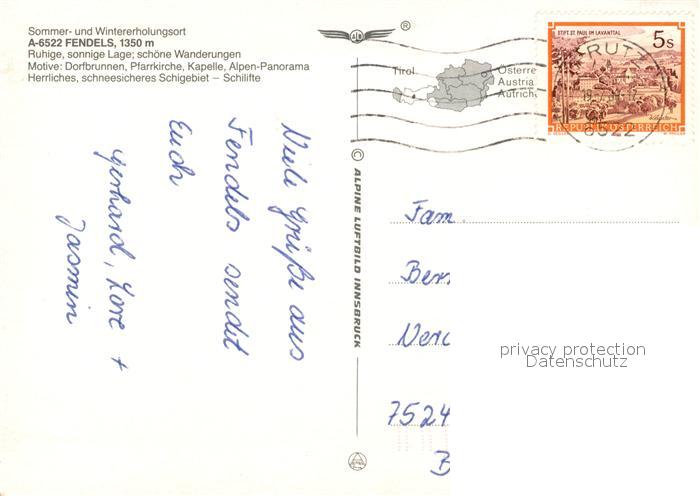 Sommer- und Wintererholungsort
A-6522 FENDELS, 1350 m
Ruhige, sonnige Lage; schöne Wanderungen
Motive: Dorfbrunnen, Pfarrkirche, Kapelle, Alpen-Panorama
Herrliches, schneesicheres Schigebiet – Schilifte
®
Tirol
Österre
Austria
Autrich
STIFT ST. PAUL IM LAVANTTAL
5s
REPUBLIK ÖSTERREICH
PRUTZ
6522
Viele Grüße aus
Fendels sendet
Euch
Gerhard, Lore +
Jasmin
© ALPINE LUFTBILD INNSBRUCK
Fam.
Ber
7524
privacy protection
Datenschutz